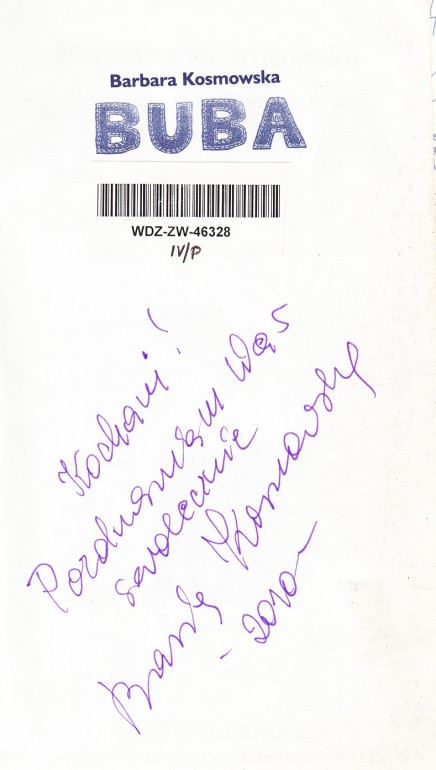 Barbara Kosmowska
BUBA
WDZ-ZW-46328
IV/P
Kochani!
Pozdrawiam Was
serdecznie
Kosmowska
- 2010 -